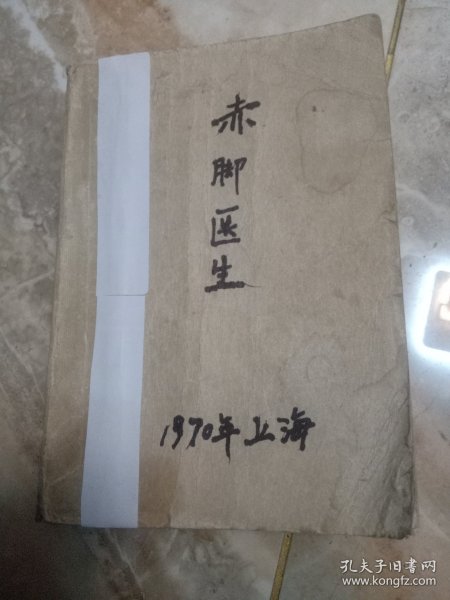 赤脚医生
1970年上海
孔夫子旧书网
www.kongfz.com